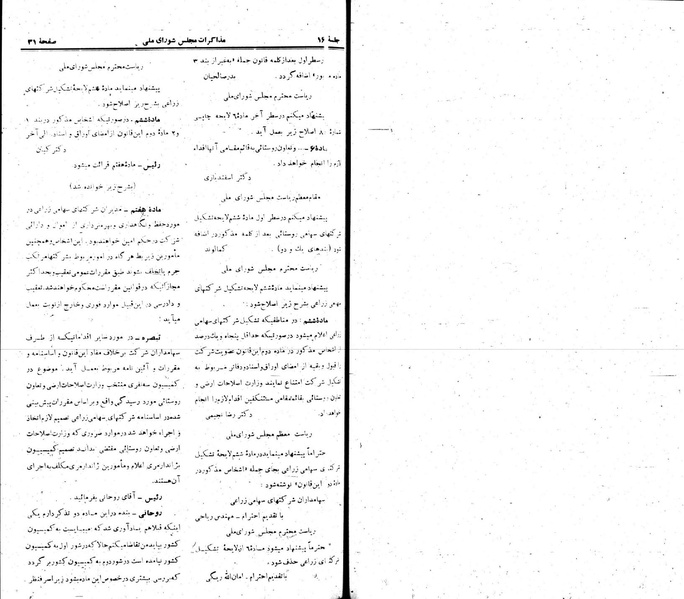 جلسهٔ ۱۶
مذاکرات مجلس شورای ملی
صفحهٔ ۳۱
سطر اول بعد از کلمه قانون جمله «به غیر از بند ۳
اضافه گردد . صدر صالحیان
ریاست محترم مجلس شورای ملی
پیشنهاد میکنم در سطر آخر مادهٔ ۶ لایحه چاپی
اصلاح زیر بعمل آید .
مادهٔ ۶ – ... وتعاون روستائی به قائم مقامی آنها اقدام
را انجام خواهد داد.
دکتر اسفندیاری
مقام معظم ریاست مجلس شورای ملی
پیشنهاد میکنم در سطر اول مادهٔ ششم لایحه تشکیل
شرکتهای سهامی روستائی بعد از کلمه مذکور در اضافه
(بندهای یک و دو) . کمالوند
ریاست محترم مجلس شورای ملی
پیشنهاد مینماید مادهٔ ششم لایحه تشکیل شرکتهای
سهامی زراعی بشرح زیر اصلاح شود:
مادهٔ ششم : در مناطقیکه تشکیل شرکتهای سهامی
زراعی اعلام میشود در صورتیکه حداقل پنجاه و یک درصد
اشخاص مذکور در ماده دوم این قانون عضویت شرکت
قبول و بقیه از امضای اوراق و اسناد و دفاتر مربوط به
تشکیل شرکت امتناع نمایند وزارت اصلاحات ارضی و
تعاون روستائی بقائم مقامی مستنکفین اقدام لازم را انجام
خواهد داد. دکتر رضا نجیمی
ریاست معظم مجلس شورای ملی
احتراماً پیشنهاد مینماید در مادهٔ ششم لایحهٔ تشکیل
سهامی زراعی بجای جمله «اشخاص مذکور در
این قانون» نوشته شود:
سهامداران شرکتهای سهامی زراعی
با تقدیم احترام ـ مهندس ریاحی
ریاست محترم مجلس شورای ملی
احتراماً پیشنهاد میشود مادهٔ ۶ لایحهٔ تشکیل
زراعی حذف شود .
با تقدیم احترام ـ امان‌الله ریگی
ریاست محترم مجلس شورای ملی
پیشنهاد مینماید مادهٔ ششم لایحهٔ تشکیل شرکتهای
زراعی بشرح زیر اصلاح شود.
مادهٔ ششم ـ در صورتیکه اشخاص مذکور در بند ۱
و ۲ مادهٔ دوم این قانون از امضای اوراق و اسناد . الی آخر
دکتر کیان
رئیس ـ مادهٔ هفتم قرائت میشود
(بشرح زیر خوانده شد)
مادهٔ هفتم ـ مدیران شرکتهای سهامی زراعی در
مورد حفظ و نگاهداری و بهره‌برداری از اموال و دارائی
شرکت در حکم امین خواهند بود . این اشخاص و همچنین
مأمورین ذیربط هرگاه در امور مربوط بشرکتها مرتکب
جرم یا تخلف بشوند طبق مقررات عمومی تعقیب و بحداکثر
مجازاتیکه در قوانین مقرر است محکوم خواهند شد. تعقیب
و دادرسی در این قبیل موارد فوری و خارج از نوبت بعمل
میآید :
تبصره ـ در مورد سایر اقداماتیکه از طرف
سهامداران شرکت برخلاف مفاد این قانون و اساسنامه و
مقررات و آئین نامه مربوط بعمل آید . موضوع در
کمیسیون سه نفری منتخب وزارت اصلاحات ارضی و تعاون
روستائی مورد رسیدگی واقع و براساس مقررات پیش بینی
شده در اساسنامه شرکتهای سهامی زراعی تصمیم لازم اتخاذ
و اجراء خواهد شد در موارد ضروری که وزارت اصلاحات
ارضی و تعاون روستائی مقتضی بداند تصمیم کمیسیون
بژاندارمری اعلام و مأمورین ژاندارمری مکلف به اجرای
آن هستند.
رئیس ـ آقای روحانی بفرمائید .
روحانی ـ بنده در این ماده دو تذکر دارم یکی
اینکه قبلا هم یادآوری شد که میبایست به کمیسیون
کشور بیاید من تقاضا میکنم حالا که در شور اول به کمیسیون
کشور نیامده است در شور دوم به کمیسیون کشور برگردد
که بررسی بیشتری در خصوص این ماده بشود زیرا صرفنظر